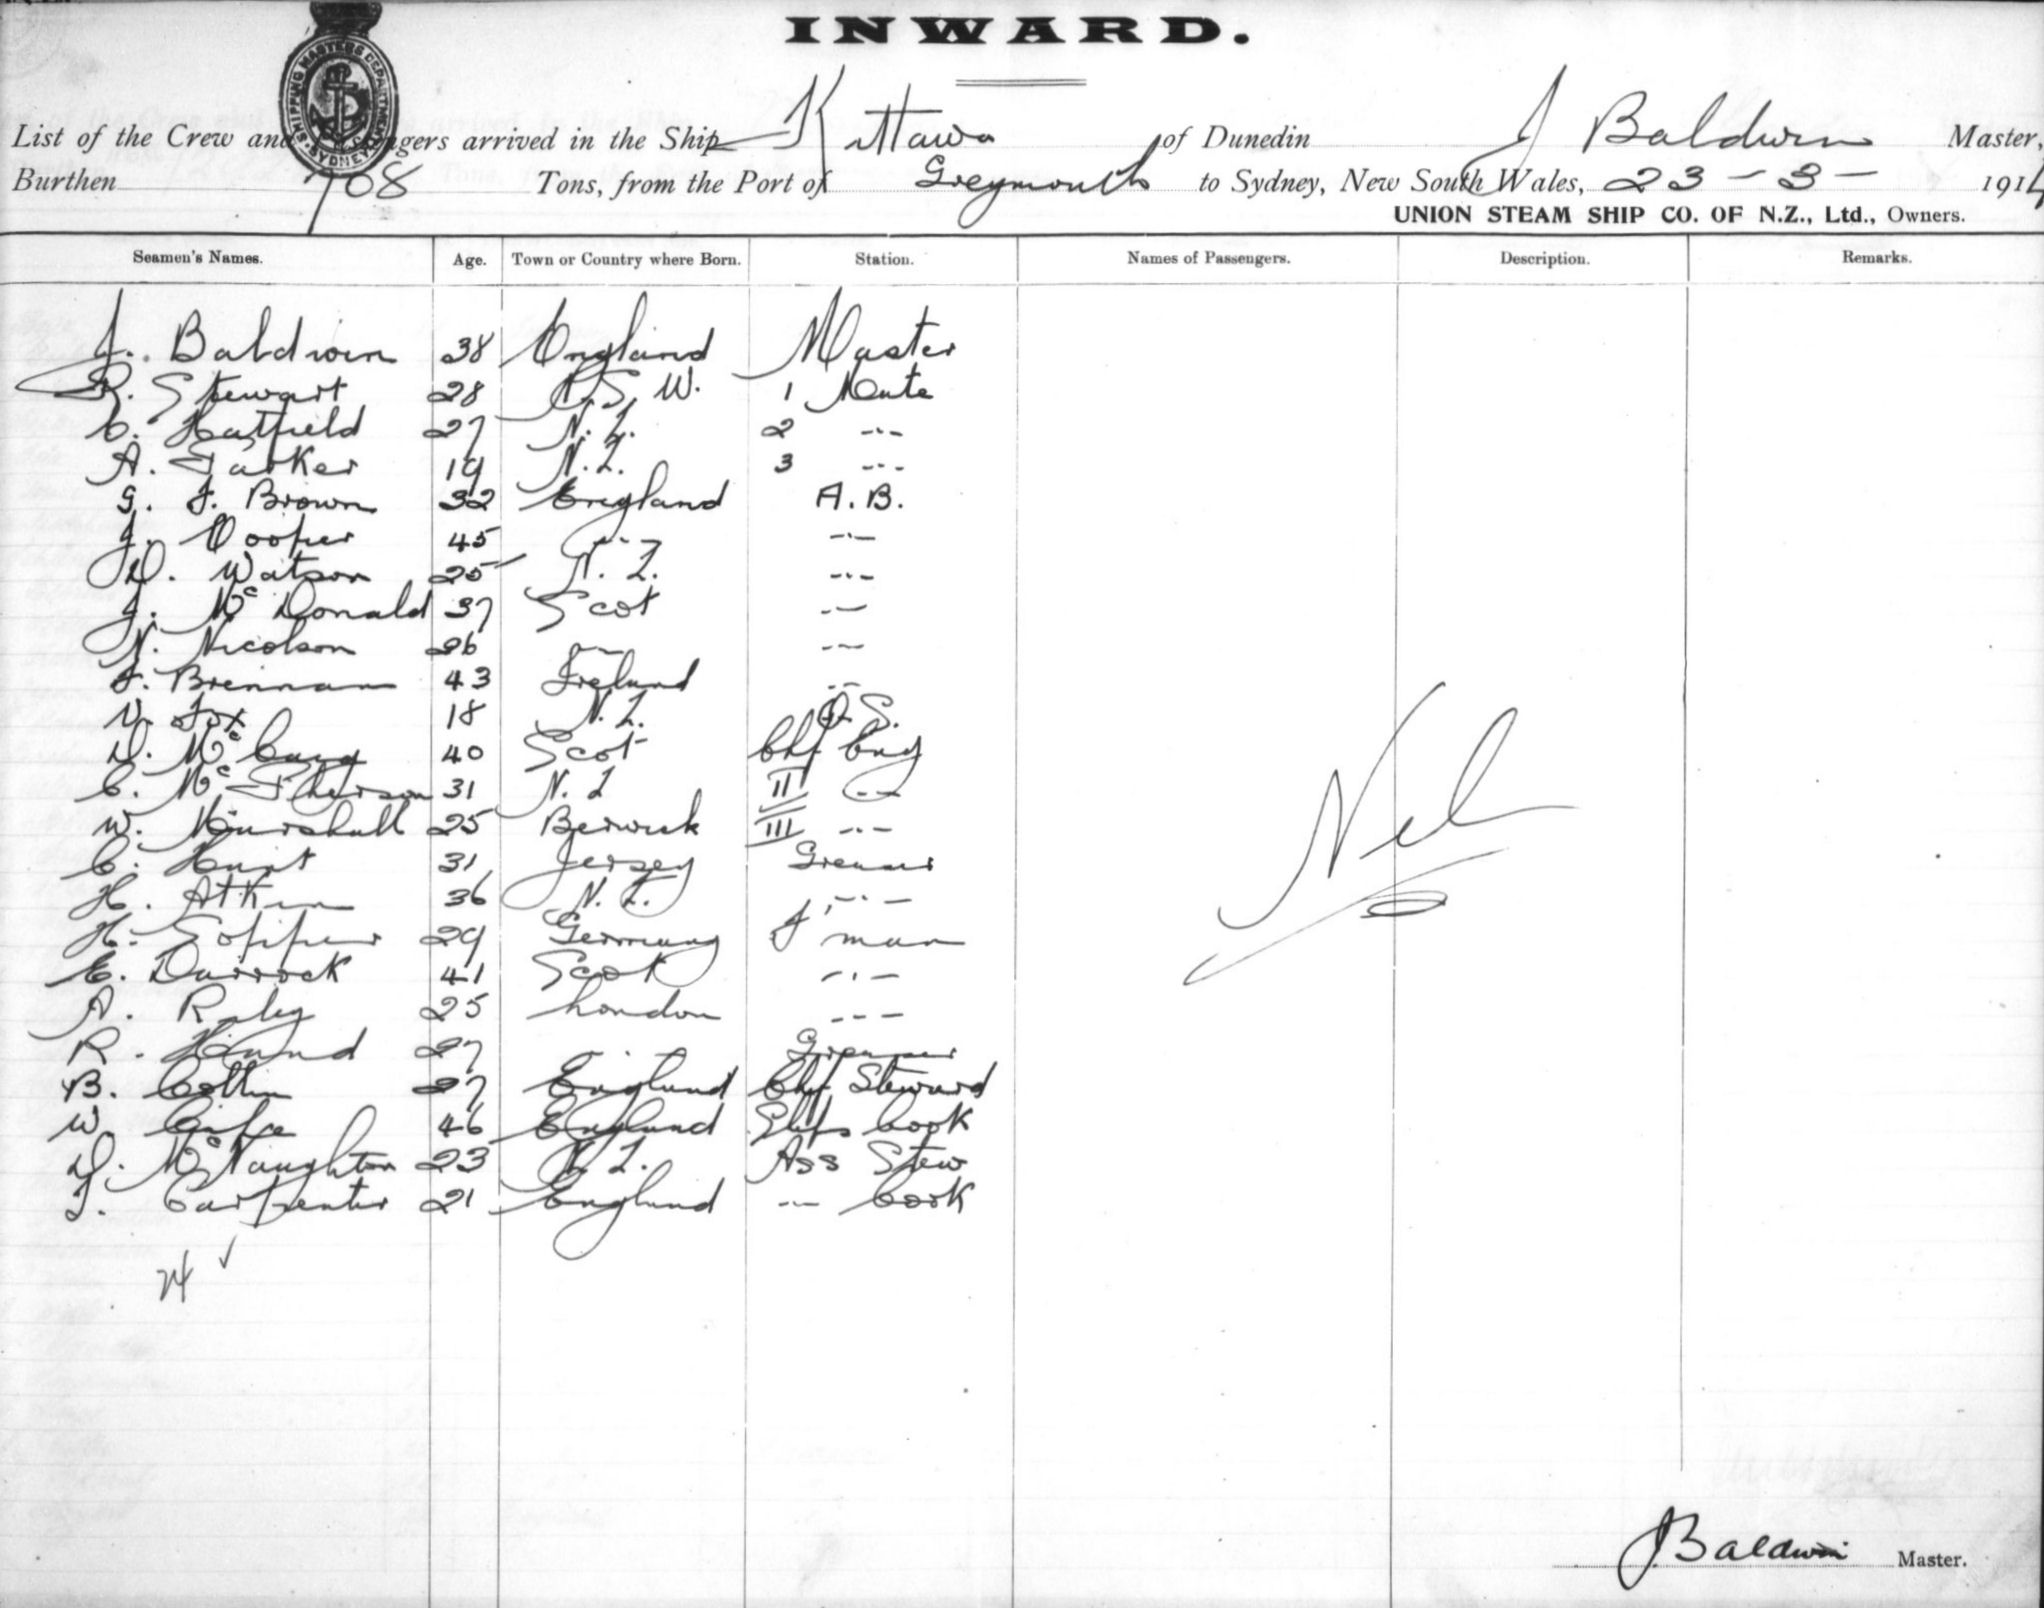 INWARD.
SHIPPING MASTERS DEPARTMENT SYDNEY
List of the Crew and Passengers arrived in the Ship Kittawa of Dunedin J Baldwin Master,
Burthen 708 Tons, from the Port of Greymouth to Sydney, New South Wales, 23 - 3 - 1914
UNION STEAM SHIP CO. OF N.Z., Ltd., Owners.
Seamen's Names. Age. Town or Country where Born. Station. Names of Passengers. Description. Remarks.
J. Baldwin 38 England Master
R. Stewart 28 N.S.W. 1 Mate
C. Hatfield 27 N.Z. 2 ---
A. Parker 19 N.Z. 3 ---
G. F. Brown 32 England A.B.
J. Cooper 45 --- ---
D. Watson 25 N.Z. ---
J. McDonald 37 Scot ---
N. Nicolson 26 --- ---
F. Brennan 43 Ireland ---
V. Fox 18 N.Z. O.S.
D. 40 Scot Chf Eng
C. McPherson 31 N.Z II ---
W. Marshall 25 Berwick III ---
C. Hunt 31 Jersey Greaser
H. Atkin 36 N.Z. ---
H. 29 Germany F'man
E. Darrock 41 Scot ---
A. 25 London ---
R. Hand 27 --- Greaser
B. Collin 27 England Chf Steward
W. 46 England Ships Cook
D. McNaughton 23 N.Z. Ass Stew
T. Carpenter 21 England --- Cook
Nil
24 ✓
J Baldwin Master.